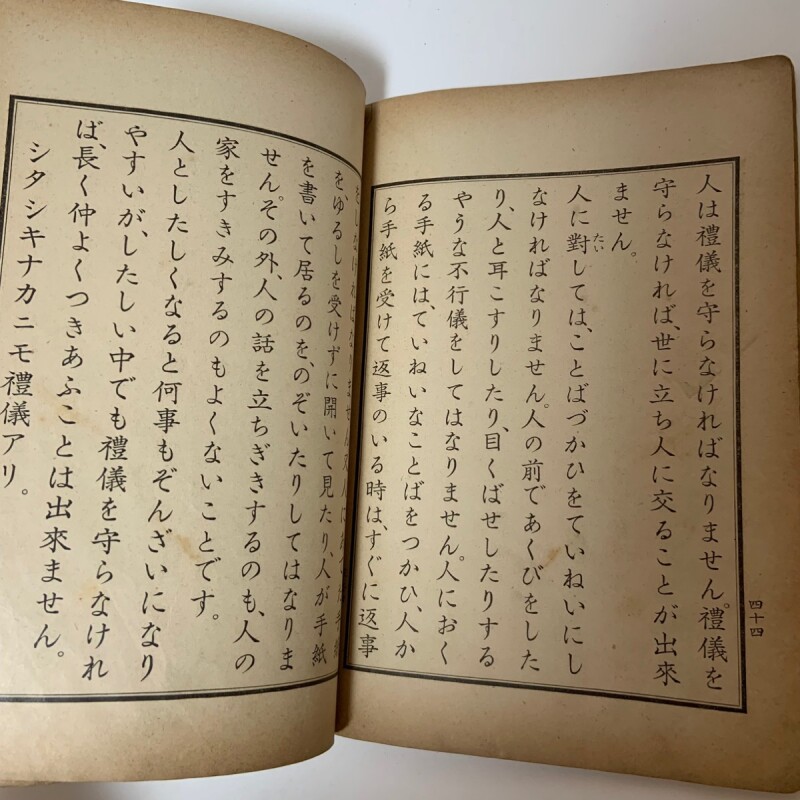 人は禮儀を守らなければなりません。禮儀を
守らなければ、世に立ち人に交ることが出來
ません。
人に對しては、ことばづかひをていねいにし
たい
なければなりません。人の前であくびをした
り、人と耳こすりしたり、目くばせしたりする
やうな不行儀をしてはなりません。人におく
る手紙には、ていねいなことばをつかひ、人か
ら手紙を受けて返事のいる時は、すぐに返事
四十四
をしなければなりません。又人にあてた手紙
を、ゆるしを受けずに開いて見たり、人が手紙
を書いて居るのを、のぞいたりしてはなりま
せん。その外、人の話を立ちぎきするのも、人の
家をすきみするのもよくないことです。
人としたしくなると何事もぞんざいになり
やすいが、したしい中でも禮儀を守らなけれ
ば、長く仲よくつきあふことは出來ません。
シタシキナカニモ禮儀アリ。